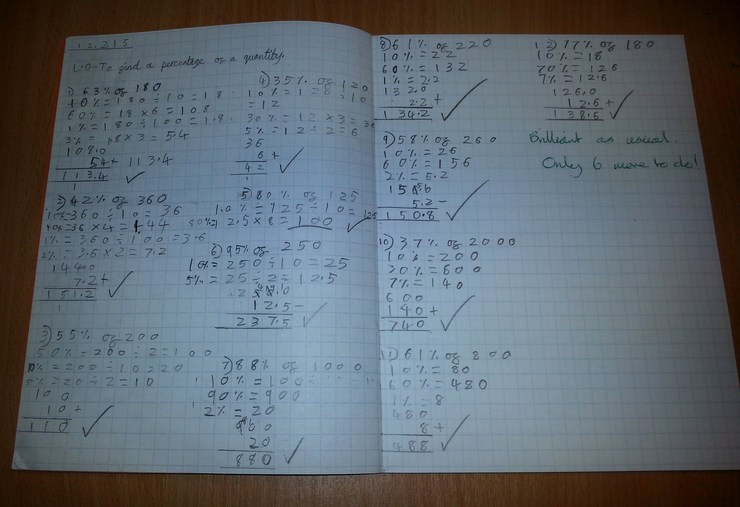 12.2.15
L.O-To find a percentage of a quantity.
1) 63% of 180
10% = 180 ÷ 10 = 18
60% = 18 x 6 = 108
1% = 180 ÷ 100 = 1.8
3% = 1.8 x 3 = 5.4
108.0
5.4+ 113.4
113.4
1
2) 42% of 360
10% = 360 ÷ 10 = 36
40% = 36 x 4 = 144
1% = 360 ÷ 100 = 3.6
2% = 3.6 x 2 = 7.2
144.0
7.2+
151.2
1
3) 55% of 200
50% = 200 ÷ 2 = 100
10% = 200 ÷ 10 = 20
5% = 20 ÷ 2 = 10
100
10+
110
4) 35% of 120
10% = 120 ÷ 10
= 12
30% = 12 x 3 = 36
5% = 12 ÷ 2 = 6
36
6+
42
1
5) 80% of 125
10% = 125 ÷ 10 = 12.5
80% = 12.5 x 8 = 100
6) 95% of 250
10% = 250 ÷ 10 = 25
5% = 25 ÷ 2 = 12.5
12.5-
237.5
7) 88% of 1000
10% = 100
90% = 900
2% = 20
900
20
880
8) 61% of 220
10% = 22
60% = 132
1% = 2.2
132.0
2.2+
134.2
9) 58% of 260
10% = 26
60% = 156
2% = 5.2
5.2-
150.8
10) 37% of 2000
10% = 200
30% = 600
7% = 140
600
140+
740
11) 61% of 800
10% = 80
60% = 480
1% = 8
480
8+
488
12) 77% of 180
10% = 18
70% = 126
7% = 12.6
126.0
12.6+
138.6
Brilliant as usual.
Only 6 more to do!